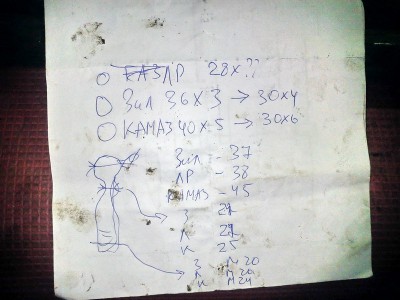 ГАЗЛР 28х??
Зил 36х3 → 30х4
КАМАЗ 40х5 → 30х6
Зил - 37
ЛР - 38
КАМАЗ - 45
З
Л
К 25
З М20
Л М20
К М24